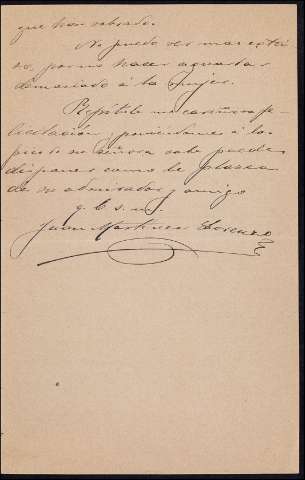 que han sobrado.
No puedo ser mas exten
so, por no hacer aguardar
demasiado á la mujer.
Repítole mi cariñosa fe
licitación, poniéndome á los
piés de su señora vale puede
disponer como le plazca
de su admirador y amigo
q. b. s. m.
Juan Martínez Lorenzo